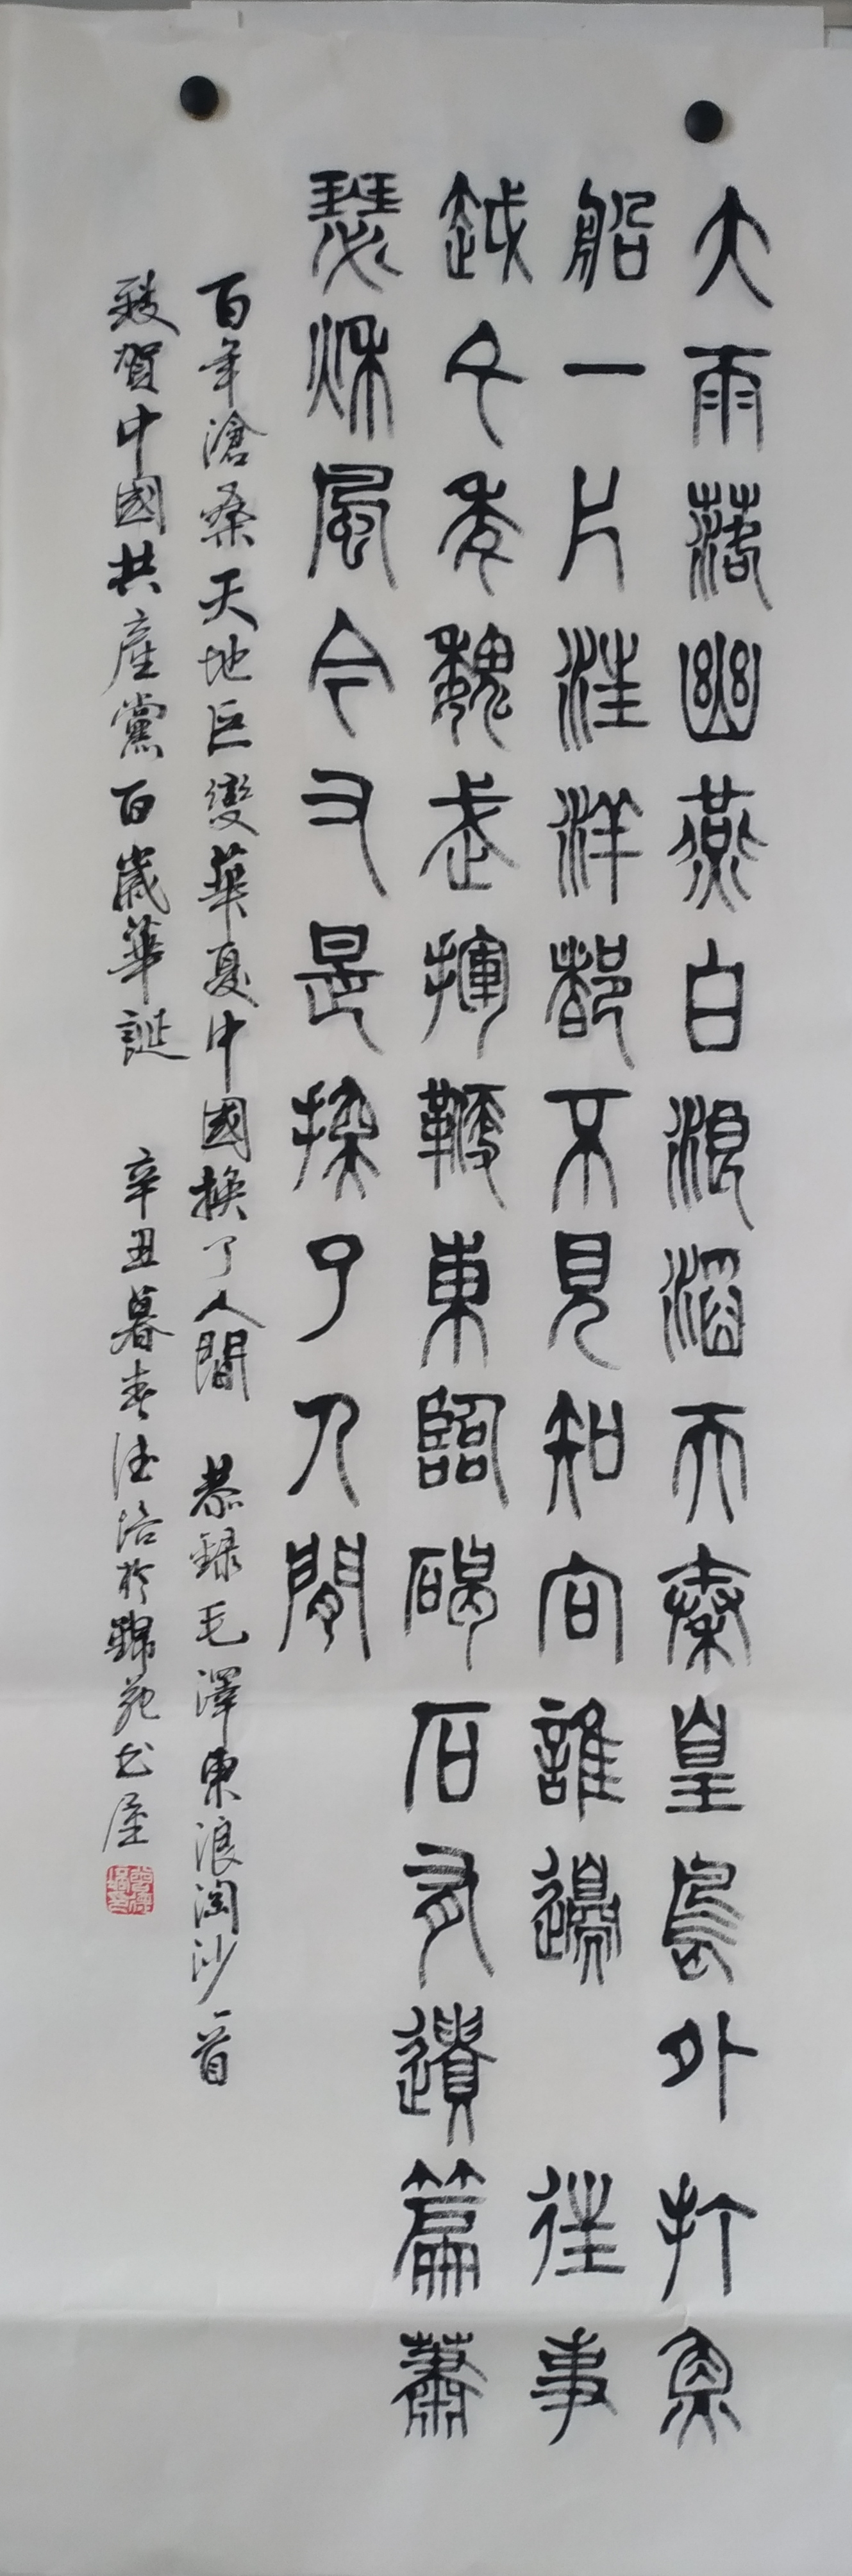 大雨落幽燕白浪滔天秦皇島外打魚
船一片汪洋都不見知向誰邊 往事
越千年魏武揮鞭東臨碣石有遺篇蕭
瑟秋風今又是換了人間
百年滄桑天地巨變華夏中國換了人間 恭録毛澤東浪淘沙一首
致賀中國共產黨百歲華誕 辛丑暮春德培於錦苑书屋